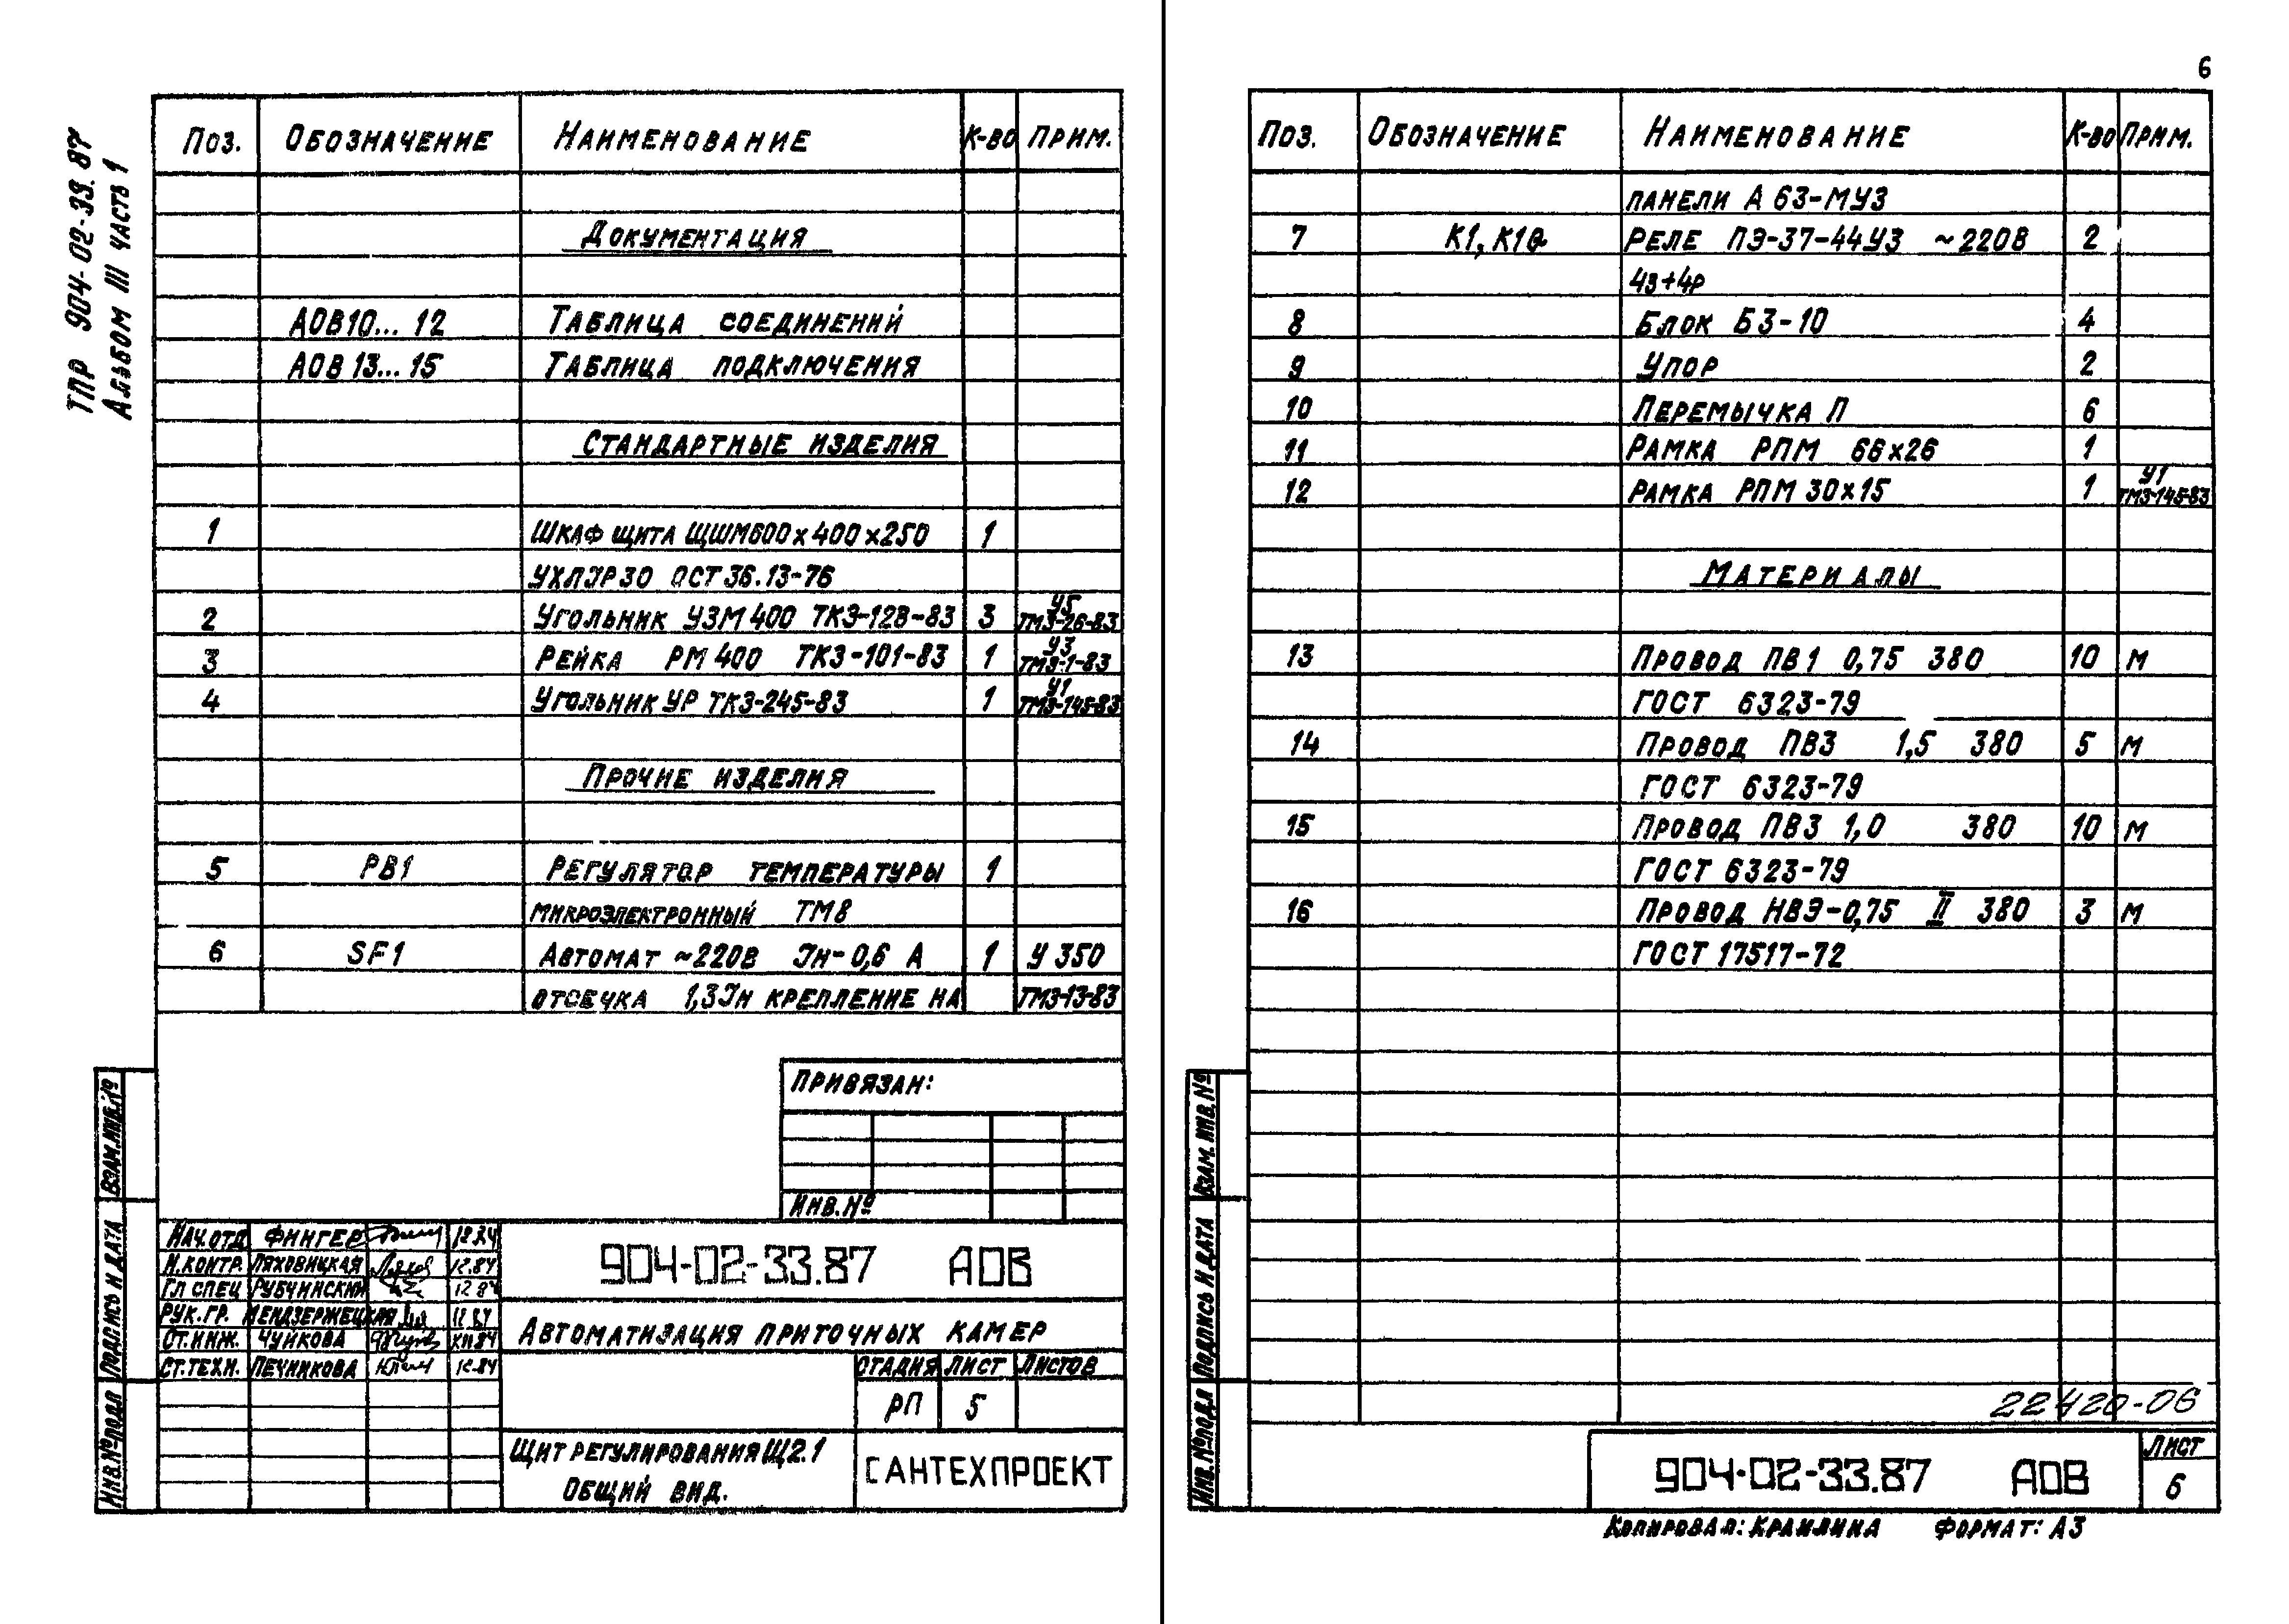 ТПР 904-02-33.87
Альбом III часть 1
Поз. Обозначение Наименование К-во Прим.
Документация
АОВ10...12 Таблица соединений
АОВ13...15 Таблица подключения
Стандартные изделия
1 Шкаф щита ЩШМ600х400х250 1
УХЛ3Р30 ОСТ36.13-76
2 Угольник УЗМ400 ТК3-128-83 3 У5 ТМ3-26-83
3 Рейка РМ400 ТК3-101-83 1 У3 ТМ3-1-83
4 Угольник УР ТК3-245-83 1 У1 ТМ3-145-83
Прочие изделия
5 РВ1 Регулятор температуры 1
микроэлектронный ТМ8
6 SF1 Автомат ~220В Jн-0,6 А 1 У350
отсечка 1,3Jн крепление на ТМ3-13-83
Привязан:
Инв.№
Взам.инв.№
Подпись и дата
Инв.№подл
Нач.отд Фингер 12.84
Н.контр. Ляховицкая 12.84
Гл спец Рубчинский 12 84
Рук.гр. Мендзержецкая 12.84
Ст.инж. Чуйкова XII.84
Ст.техн. Печникова 12.84
904-02-33.87 АОВ
Автоматизация приточных камер
Стадия Лист Листов
РП 5
Щит регулирования Щ2.1
Общий вид.
САНТЕХПРОЕКТ
6
Поз. Обозначение Наименование К-во Прим.
панели А63-МУ3
7 К1, К1а Реле ПЭ-37-44У3 ~220В 2
4з+4р
8 Блок БЗ-10 4
9 Упор 2
10 Перемычка П 6
11 Рамка РПМ 66х26 1
12 Рамка РПМ 30х15 1 У1 ТМ3-145-83
Материалы
13 Провод ПВ1 0,75 380 10 м
ГОСТ 6323-79
14 Провод ПВ3 1,5 380 5 м
ГОСТ 6323-79
15 Провод ПВ3 1,0 380 10 м
ГОСТ 6323-79
16 Провод НВЭ-0,75 II 380 3 м
ГОСТ 17517-72
22420-06
Взам. инв.№
Подпись и дата
Инв.№подл
904-02-33.87 АОВ
Лист
6
Копировал: Краилина Формат: А3